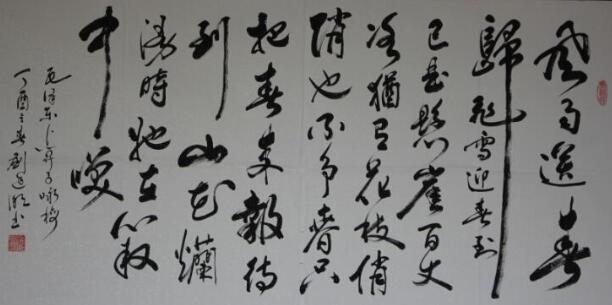 风雨送春
歸飛雪迎春到
已是懸崖百丈
冰猶有花枝俏
俏也不争春只
把春来報待
到山花爛
漫時她在丛
中笑
毛泽东卜算子咏梅
丁酉之春劉
书